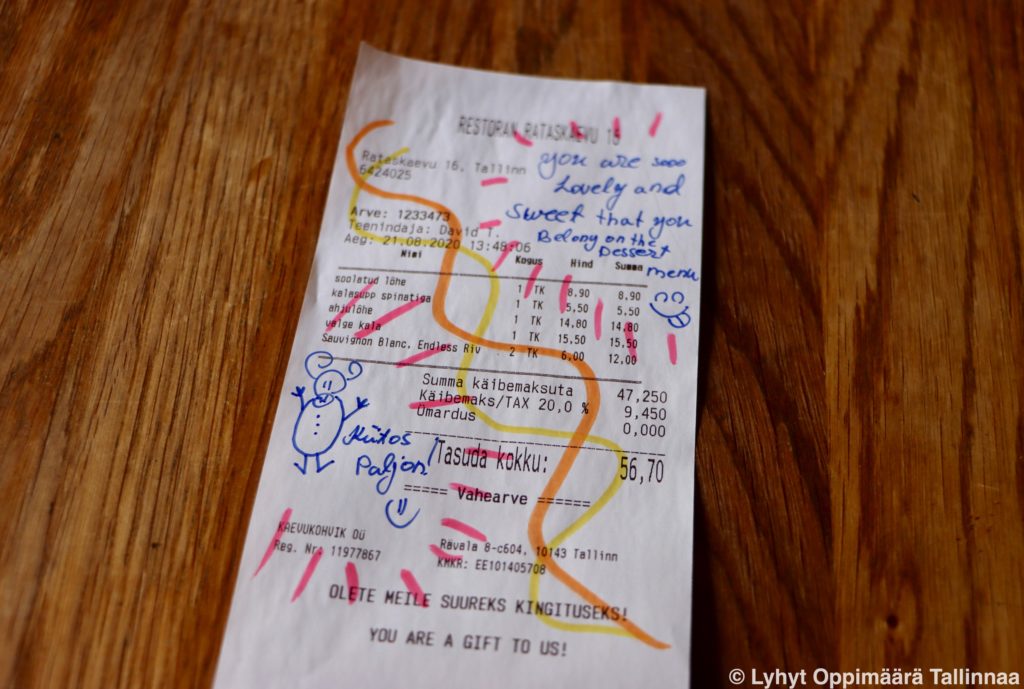 RESTORAN RATASKAEVU 16
Rataskaevu 16, Tallinn
6424025
you are sooo
Lovely and
Sweet that you
Belong on the
Dessert
menu
Arve: 1233473
Teenindaja: David T.
Aeg: 21.08.2020 13:48:06
Nimi Kogus Hind Summa
soolatud lõhe 1 TK 8.90 8.90
kalasupp spinatiga 1 TK 5,50 5.50
ahjulõhe 1 TK 14,80 14,80
valge kala 1 TK 15,50 15,50
Sauvignon Blanc, Endless Riv 2 TK 6,00 12,00
Summa käibemaksuta 47,250
Käibemaks/TAX 20,0 % 9,450
Ümardus 0,000
Kiitos
Paljon!
Tasuda kokku: 56,70
===== Vahearve ======
KAEVUKOHVIK OÜ
Reg. Nr: 11977867
Rävala 8-c604, 10143 Tallinn
KMKR: EE101405708
OLETE MEILE SUUREKS KINGITUSEKS!
YOU ARE A GIFT TO US!
© Lyhyt Oppimäärä Tallinnaa